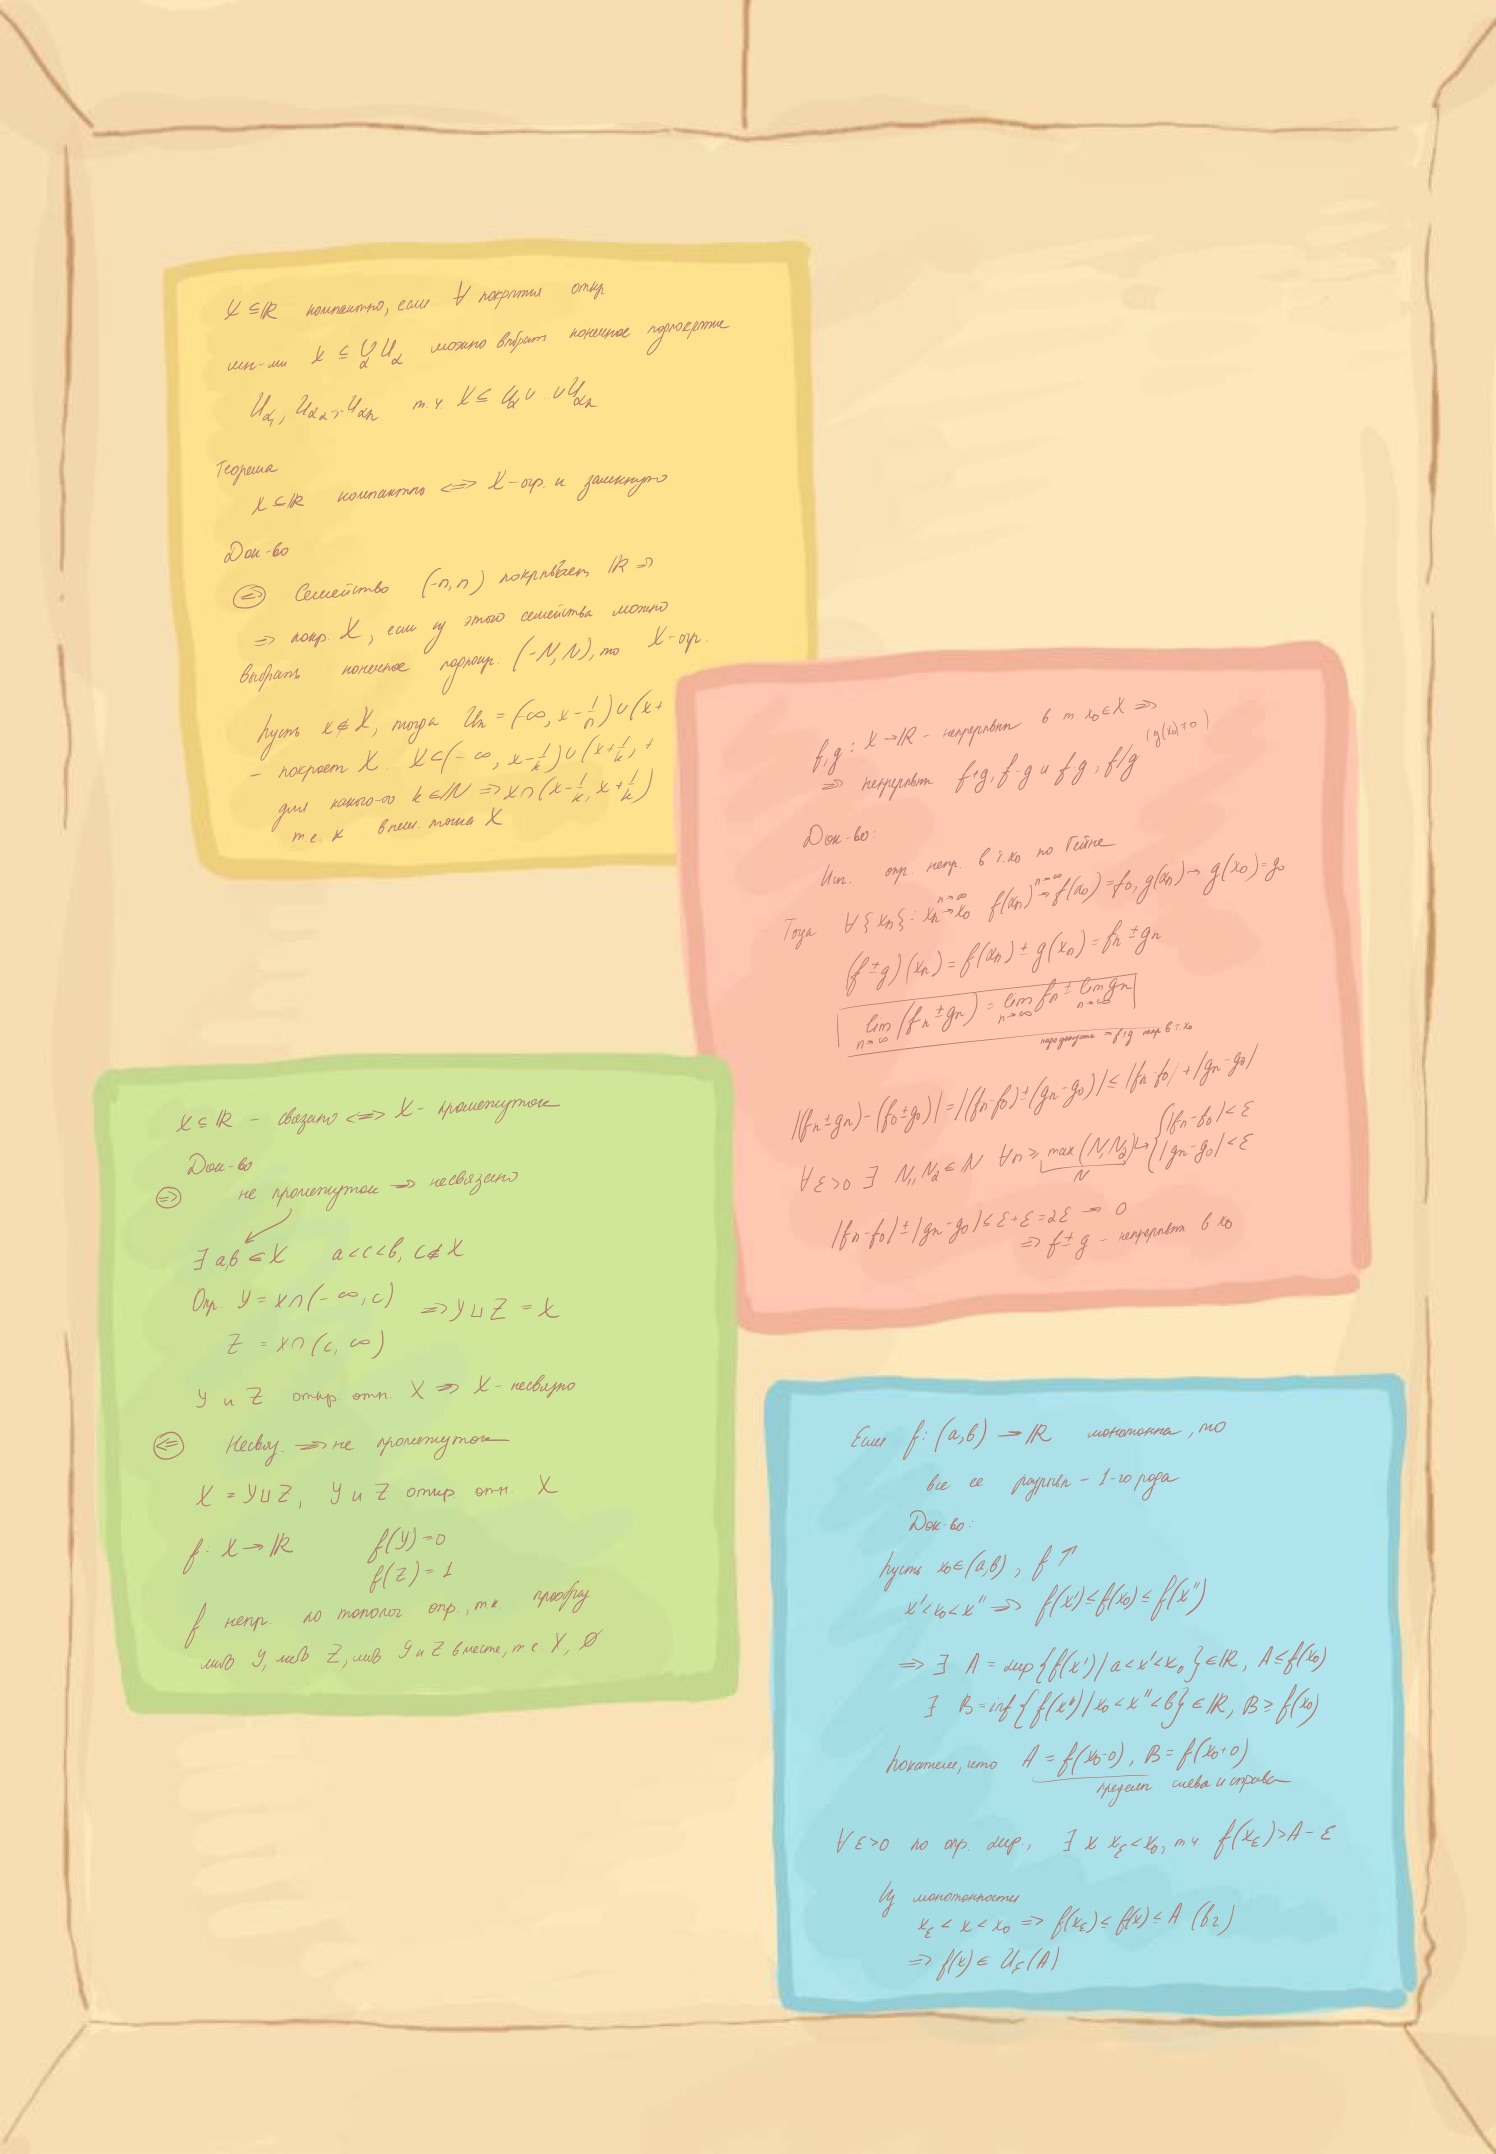 X ⊆ ℝ компактно, если ∀ покрытия откр
мн-ми X ⊆ ∪_α U_α можно выбрать конечное подпокрытие
U_α₁, U_α₂, … U_αn т.ч. X ⊆ U_α ∪ .. ∪ U_αn
Теорема
X ⊆ ℝ компактно ⟺ X - огр. и замкнуто
Док-во
⇒ Семейство (-n, n) покрывает ℝ ⇒
⇒ покр. X, если из этого семейства можно
выбрать конечное подпокр. (-N, N), то X - огр.
Пусть x ∉ X, тогда U_n = (-∞, x - 1/n) ∪ (x +
- покроет X. X ⊂ (-∞, x - 1/k) ∪ (x + 1/k, +
для какого-то k ∈ ℕ ⇒ X ∩ (x - 1/k, x + 1/k)
т.е. x внеш. точка X
f, g : X → ℝ - непрерывны в т. x₀ ∈ X ⇒
⇒ непрерывны f+g, f-g и f·g, f/g (g(x₀)≠0)
Док-во:
Исп. опр. непр. в т. x₀ по Гейне
Тогда ∀ {x_n} : x_n →(n→∞) x₀ f(x_n) →(n→∞) f(x₀) = f₀, g(x_n) → g(x₀) = g₀
(f ± g)(x_n) = f(x_n) ± g(x_n) = f_n ± g_n
lim_{n→∞} (f_n ± g_n) = lim_{n→∞} f_n ± lim_{n→∞} g_n
надо доказать ⇒ f±g непр в т. x₀
|(f_n ± g_n) - (f₀ ± g₀)| = |(f_n - f₀) ± (g_n - g₀)| ≤ |f_n - f₀| + |g_n - g₀|
∀ε>0 ∃ N₁, N₂ ∈ N ∀n ≥ max(N₁, N₂) ↪ { |f_n - f₀| < ε
N |g_n - g₀| < ε
|f_n - f₀| ± |g_n - g₀| ≤ ε + ε = 2ε → 0
⇒ f ± g - непрерывн в x₀
X ⊆ ℝ - связано ⟺ X - промежуток
Док-во
⇒ не промежуток ⇒ несвязано
∃ a, b ∈ X a < c < b, c ∉ X
Опр. Y = X ∩ (-∞, c) ⇒ Y ⊔ Z = X
Z = X ∩ (c, ∞)
Y и Z откр. отн. X ⇒ X - несвязно
⇐ Несвяз. ⇒ не промежуток
X = Y ⊔ Z, Y и Z откр отн. X
f: X → ℝ f(Y) = 0
f(Z) = 1
f непр. по тополог опр., т.к. прообраз
либо Y, либо Z, либо Y и Z вместе, т.е X, ∅
Если f: (a, b) → ℝ монотонна, то
все ее разрывы - 1-го рода
Док-во:
Пусть x₀ ∈ (a, b), f ↑
x' < x₀ < x'' ⇒ f(x') ≤ f(x₀) ≤ f(x'')
⇒ ∃ A = sup{f(x') | a < x' < x₀} ∈ ℝ, A ≤ f(x₀)
∃ B = inf{f(x'') | x₀ < x'' < b} ∈ ℝ, B ≥ f(x₀)
Покажем, что A = f(x₀-0), B = f(x₀+0)
пределы слева и справа
∀ε>0 по опр. sup., ∃ x x_ε < x₀, т.ч f(x_ε) > A - ε
Из монотонности
x_ε < x < x₀ ⇒ f(x_ε) ≤ f(x) ≤ A
⇒ f(x) ∈ U_ε(A)